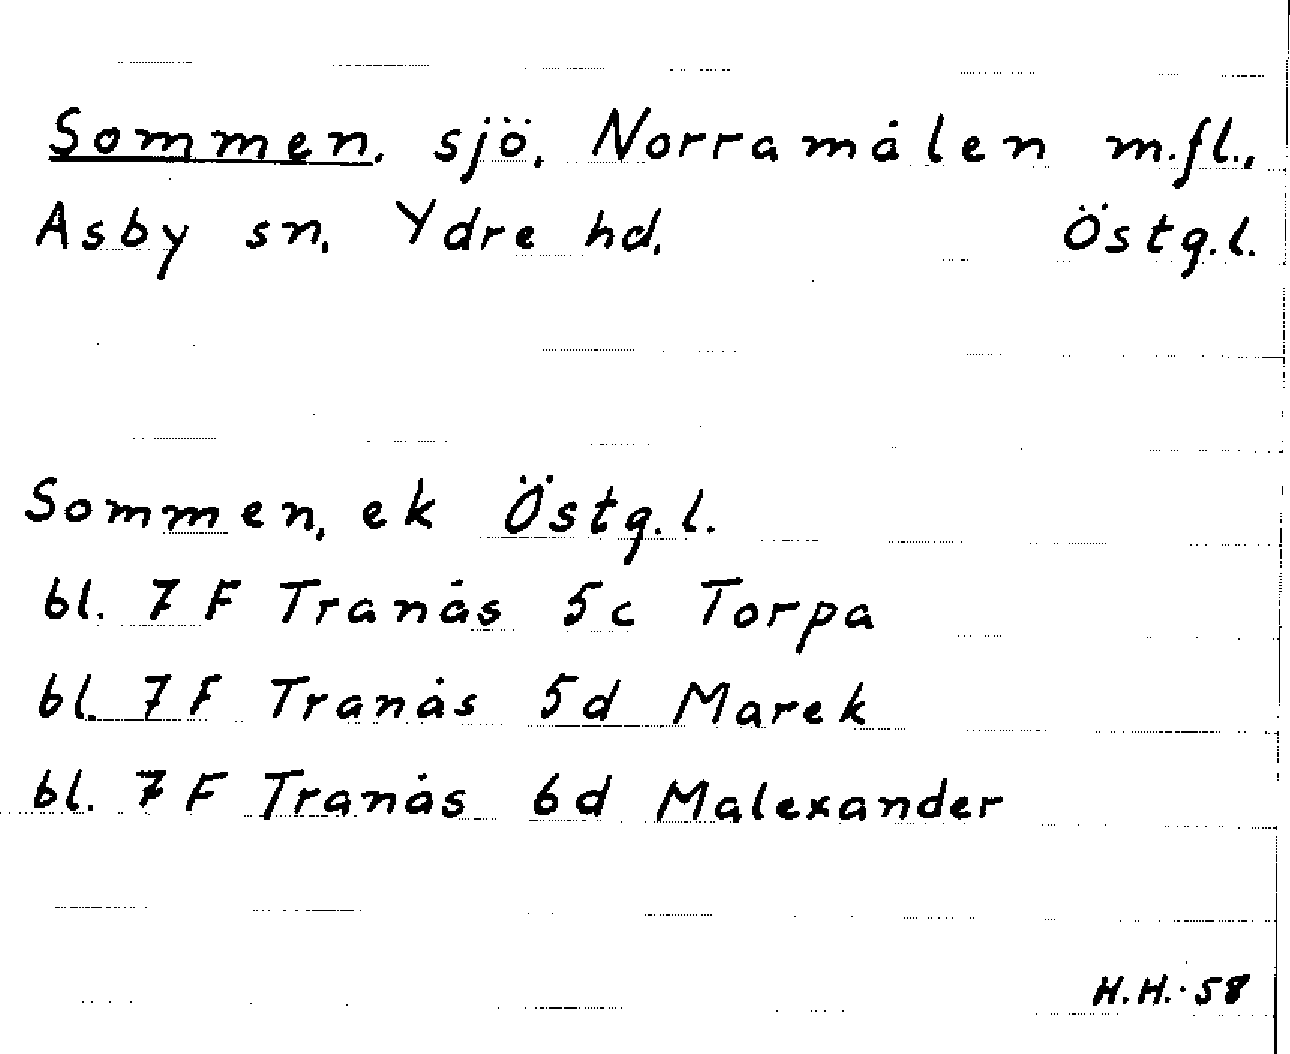 Sommen, sjö, Norramålen m.fl.,
Asby sn, Ydre hd, Östg.l.
Sommen, ek Östg.l.
bl. 7 F Tranås 5c Torpa
bl. 7 F Tranås 5d Marek
bl. 7 F Tranås 6d Malexander
H.H. 58